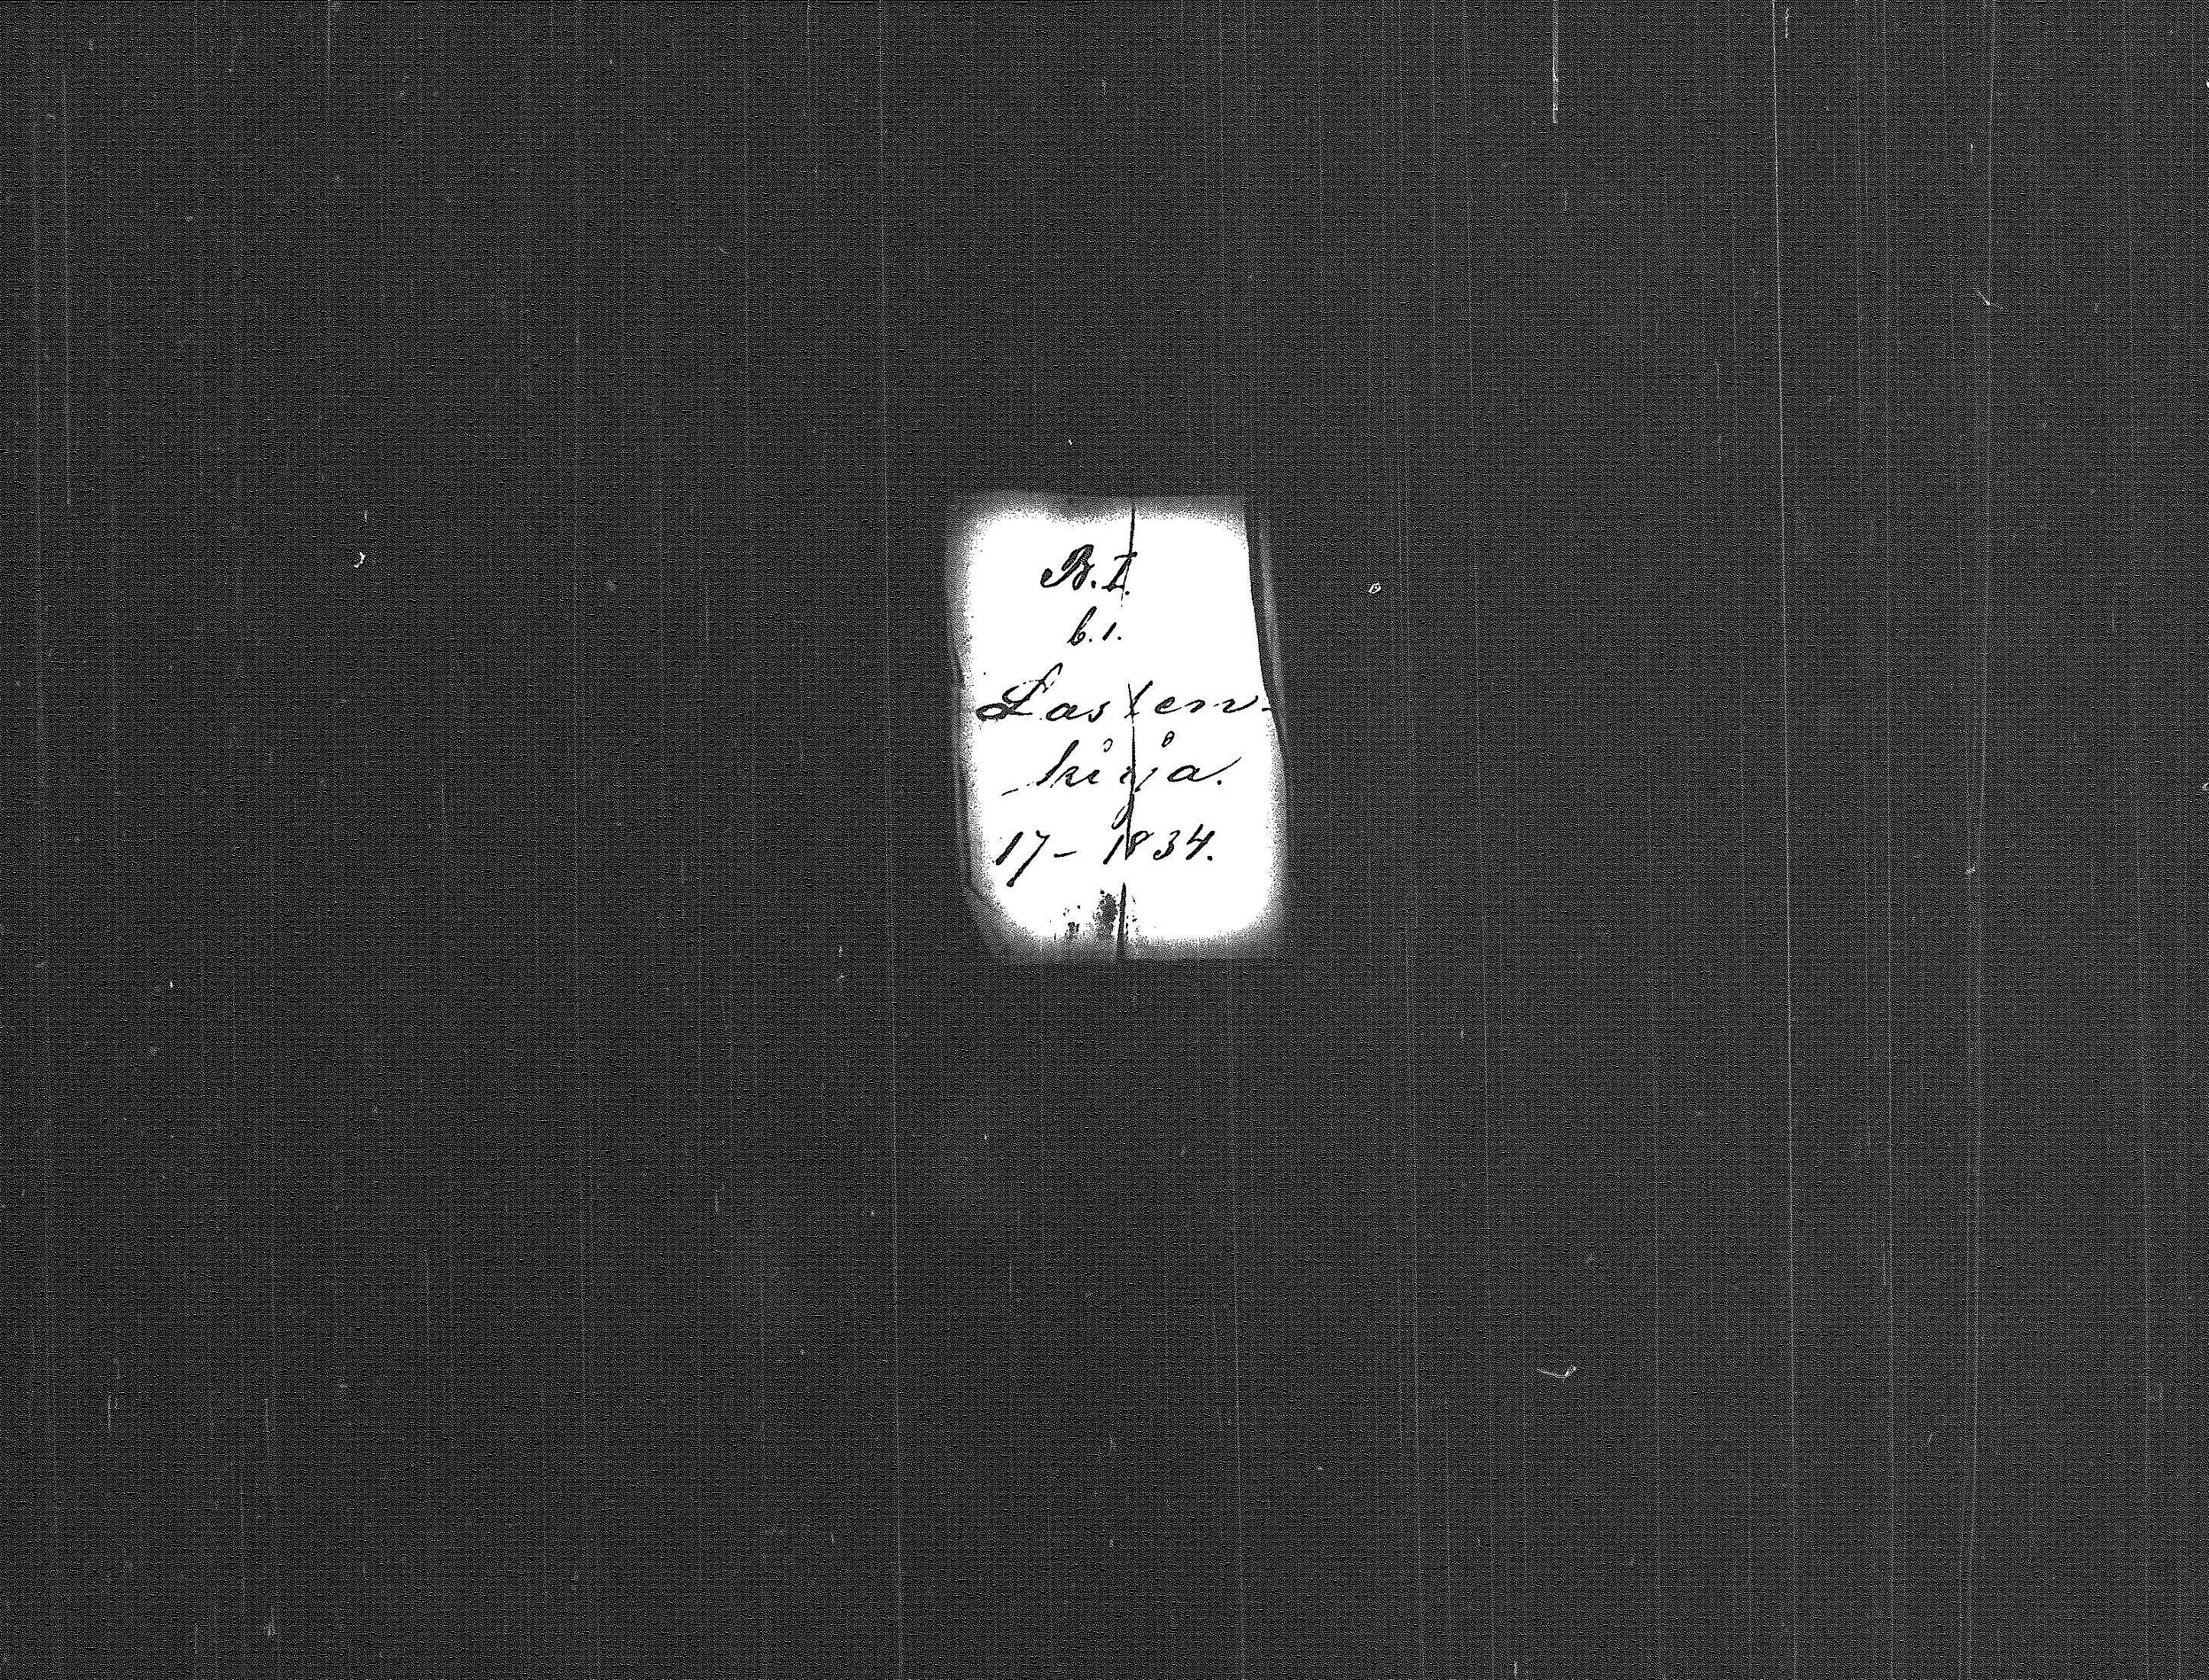 B.I.
b.1.
Lasten-
kirja.
17- 1834.